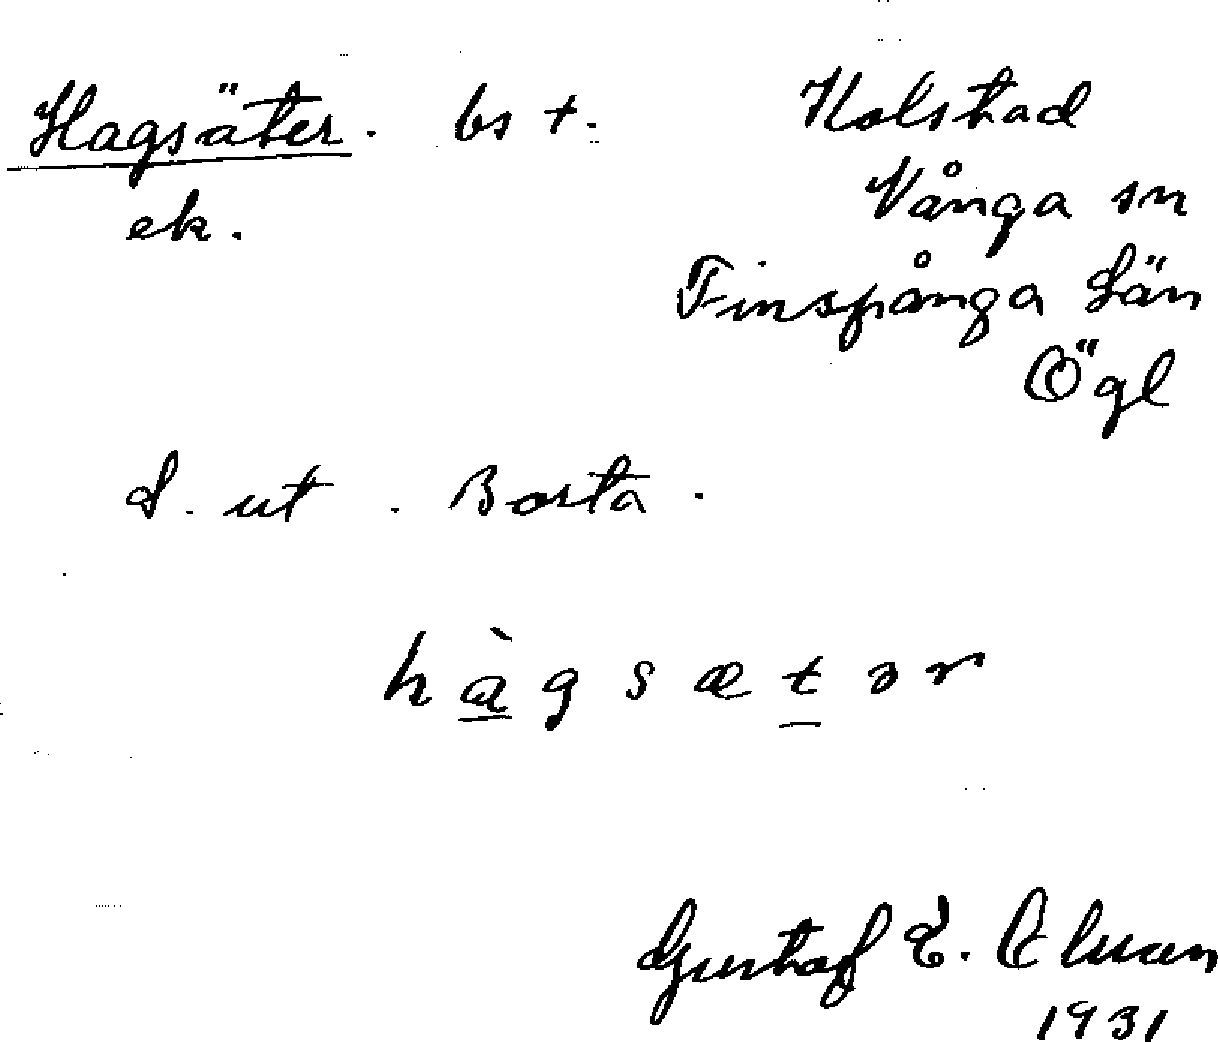 Hagsäter. bst. Kolstad
ek. Vånga sn
Finspånga Län
Ögl
S. ut. Borta.
hàgsætər
Gustaf E.
1931